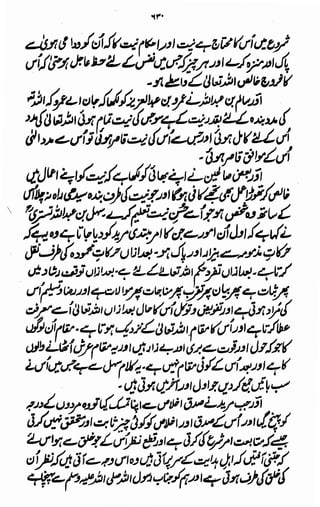 ۶۳۰
شروع میں اُس کا محتاج ہے نیت اور احکام نیت کا کہ اُن کو دواعی ہویٰ سے
پاک اور منزہ کرے اور ہر چیز کہ جس میں نفس کے لئے حظ عاجل ہو حتیٰ کہ اُس
کا خروج خالص اللہ تعالیٰ کے واسطے ہو۔
اور سالم بن عبداللہ نے عمر بن عبدالعزیز کو لکھا کہ جان اے عمر کہ اللہ تعالیٰ
کی مدد بندہ کے لئے بقدر نیت کے ہے سو جس کی نیت تمام ہوئی اللہ تعالیٰ کی مدد
اُس کے لئے کامل ہوئی اور جس سے اُس کی نیت قاصر ہوئی تو اُس سے مدد الٰہی
اُس کے موافق قاصر ہوئی۔
اور بعض صالحین نے اپنے بھائی کو لکھا ہے کہ نیت کو اپنے اعمال میں
خالص کر تھوڑا عمل بھی تجھے کافی ہوگا اور جو نیت کی طرف بندہ سیدھی راہ نہ چلا اُس
کے ساتھ وہ شخص ہو جو اُسے حسن نیت تعلیم کرے۔ سہل بن عبداللہ تستری رح
نے کہا ہے کہ اول اُن امور سے جن کا امر مبتدی مرید کو دیا جاتا ہے وہ یہ ہے کہ
حرکات مذمومہ سے بیزار اور پاک ہو۔ بعد ازاں حرکات محمودہ کی طرف نقل
کرتا ہے۔ بعد ازاں تفرد حکم اللہ تعالیٰ کے لئے ہے، بعد ازاں توقف رشاد میں
پھر ثبات ہے پھر بیان پھر قرب پھر مناجات پھر موالات ہے اور رضا و تسلیم اُس
کی مراد ہوتی ہے اور تفویض و توکل اُس کا حال بعد ازاں اللہ تعالیٰ اُسے معرفت
عطا کرتا ہے اور اُس کا مقام اللہ تعالیٰ کے نزدیک ہوتا ہے۔ مقام اُن لوگوں
کا جو کہ حول اور قوت سے بری اور بے زار ہیں اور یہ مقام عرش اُٹھانے والوں
کا ہے اور بعد اُس کے کوئی مقام نہیں ہے۔ یہ کلام سہل سے ہے جس میں اُس نے
سب باتیں جمع کر دیں جو اول اور آخر میں ہوتی ہیں۔
اور جب مرید نے صدق اخلاص سے اپنا تمسک کیا تو وہ مردوں کے درجہ
کو پہنچے گا اور اُس کے صدق اور اخلاص کو کوئی چیز ثابت اور متحقق نہیں کرتی
جیسے کہ متابعت امر شرع کی کرتی ہے اور قطع نظر اُس کے جو خلق سے ہو اس لئے
کہ جتنی آفتیں کہ اہل بدایت کے سر پر آتی ہیں وہ اس وجہ سے آتی ہیں کہ نظر اُن
کی خلق کی طرف ہوتی ہے اور ہم کو جناب رسول اللہ صلی اللہ علیہ وسلم سے پہنچا ہے